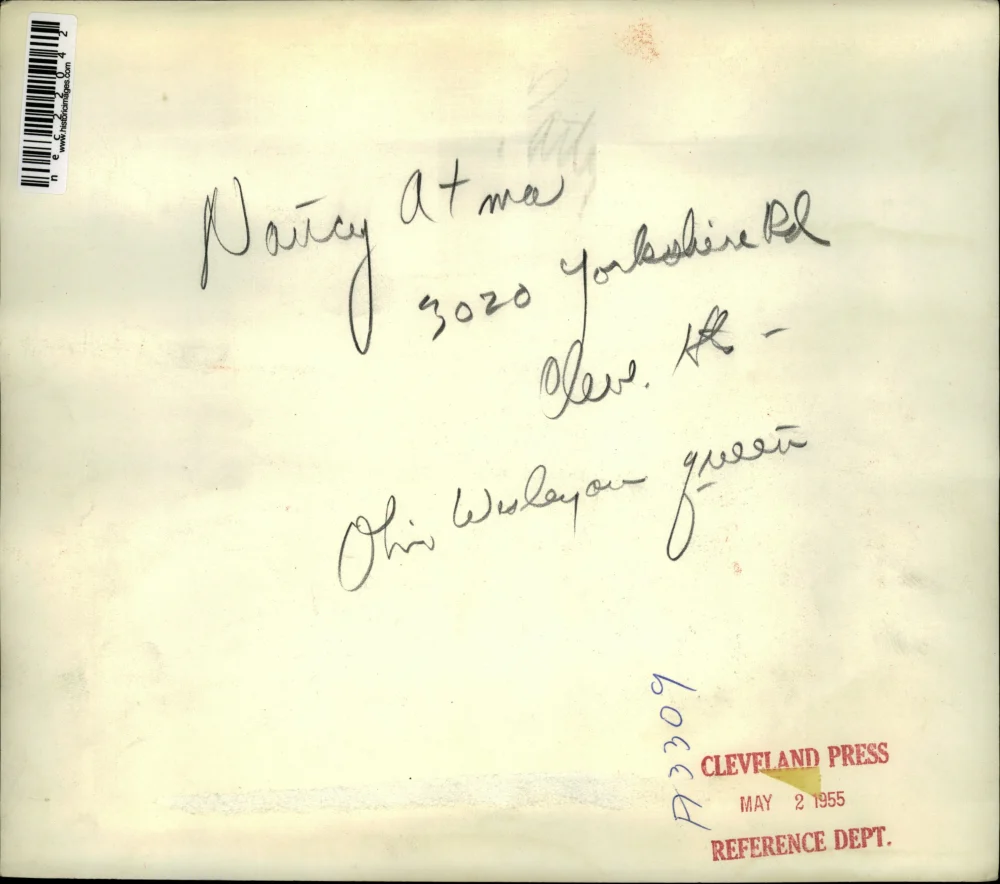 nec22042
www.historicimages.com
Nancy Atma
3020 Yorkshire Rd
Cleve. Hts -
Ohio Wesleyan queen
A3309
CLEVELAND PRESS
MAY 2 1955
REFERENCE DEPT.